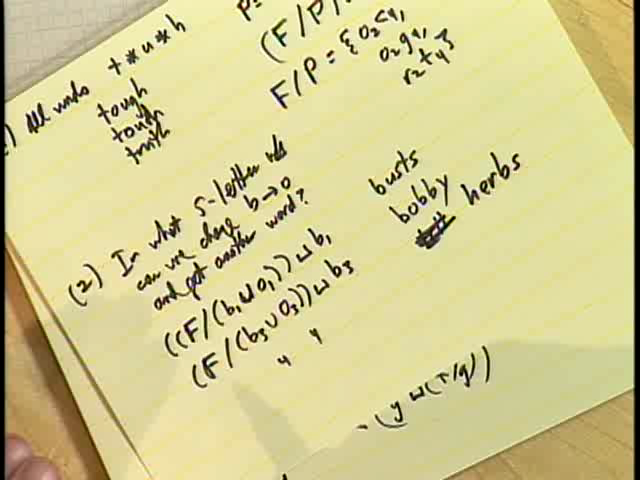 P=
(F/P)
F/P = { o₂c₄,
o₂g₄,
r₂t₄ }
) All words t*u*h
tough
touch
truth
(2) In what 5-letter wds
can we change b→o
and get another word?
((F/(b₁ ⊔ o₁)) ⊔ b₁
(F/(b₃ ∪ o₃)) ⊔ b₃
" "
busts
bobby
herbs
(y ⊔ (T/g))